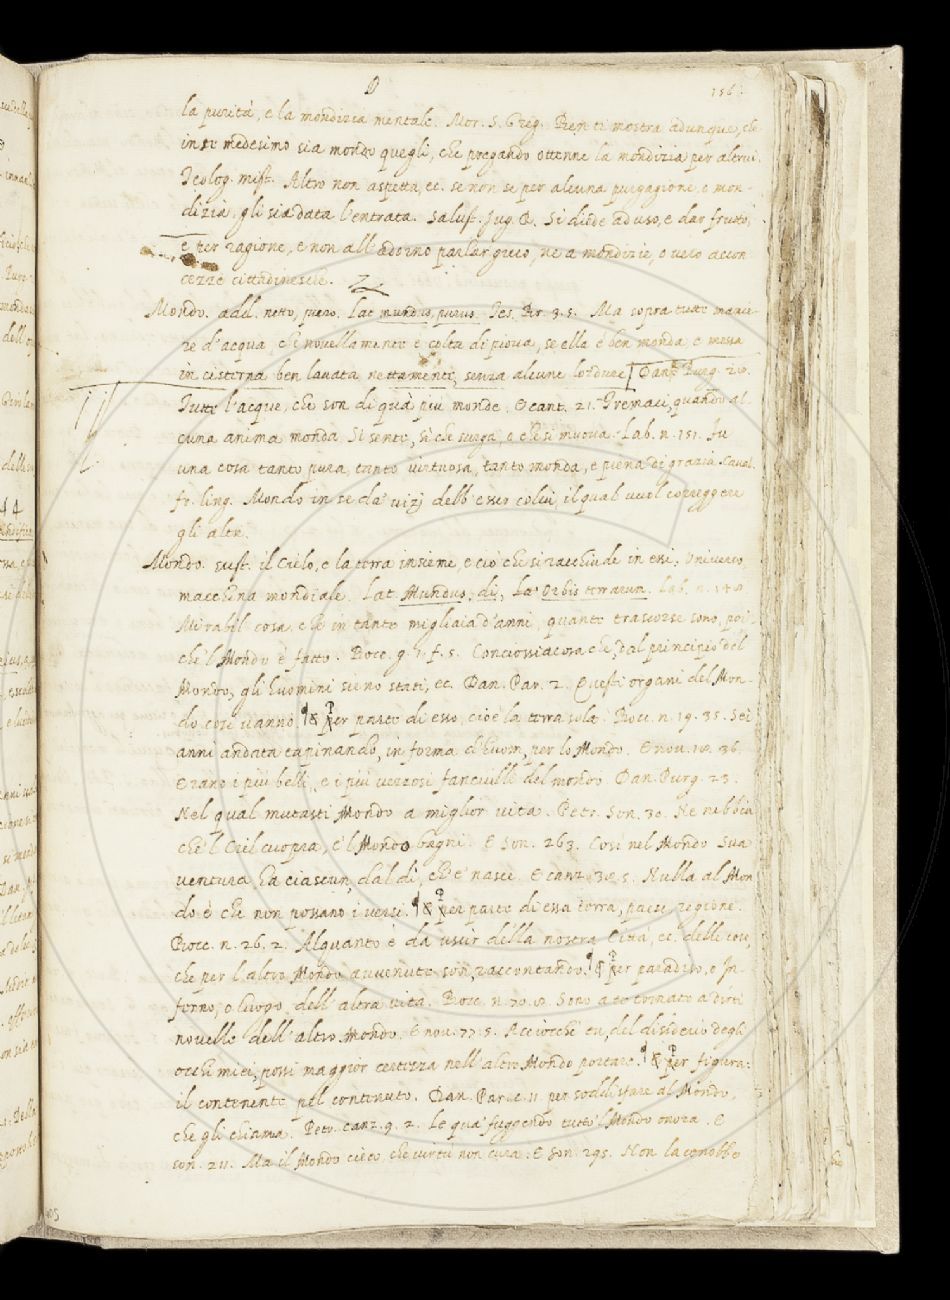 D 156.
la purità, e la mondizia mentale. Mor. S. Greg. Ben ti mostra adunque, che
in se medesimo sia mondo quegli, che pregando ottenne la mondizia per altrui.
Teolog. mist. Altro non aspetta, ec. se non se per alcuna purgagione, e mon-
dizia, gli sia data l'entrata. Salust. Jug. R. Si diede ad uso, e dar frutto,
e per ragione, e non all'adorno parlar greco, ne a mondizie, o vero accon
cezze cittadinesche.
Mondo. add. netto, puro. Lat. mundus, purus. Tes. Br. 3. 5. Ma sopra tutte manie-
re d'acqua, è novellamente è colta di piova, se ella è ben monda, e messa
in cisterna ben lavata nettamente, senza alcune lordure Dan. Purg. 28.
Tutte l'acque, che son di quà più monde. E cant. 21. Tremaci, quando al
cuna anima monda Si sente, sì che surga, o che si muova. Lab. n. 151. Fu
una cosa tanto pura, tanto virtuosa, tanto monda, e piena di grazia. Caval.
fr. ling. Mondo in se da' vizj debb' esser colui, il qual vuol correggere
gli altri.
Mondo. sust. il Cielo, e la terra insieme, e ciò che si racchiude in essi, Universo,
macchina mondiale. Lat. Mundus, di, Lat Orbis terrarum. Lab. n. 148
Mirabil cosa, che in tante migliaia d'anni, quante trascorse sono, poi
che'l Mondo è fatto. Bocc. g. 7. f. 5. Conciossiacosa che, dal principio del
Mondo, gli huomini sieno stati, ec. Dan. Par. 2. Questi organi del Mon-
do così vanno. ¶ & per parte di esso, cioè la terra sola. Bocc. n. 19. 35. Sei
anni andata tapinando, in forma d'huom, per lo Mondo. E nov. 18. 36.
Erano i più belli, e i più vezzosi fanciulli del mondo Dan. Purg. 23.
Nel qual mutasti Mondo a miglior vita. Petr. Son. 30. Ne nebbia
che'l Ciel cuopra, e'l Mondo bagni. E Son. 263. Così nel Mondo Sua
ventura ha ciascun, dal dì, che e' nasce. E canz. 38. 5. Nulla al Mon
do è che non possano i versi. ¶ & per parte di essa terra, paese, regione.
Bocc. n. 26. 2. Alquanto è da uscir della nostra Città, ec. delle cose,
che per l'altro Mondo avvenute son, raccontando. ¶ & per paradiso, o In-
ferno, o luogo dell'altra vita. Bocc. n. 70. 8. Sono a te tornato a dirti
novelle dell'altro Mondo. E nov. 77. 5. Acciocchè tu, del disiderio degli
occhi miei, possi maggior certezza nell'altro Mondo portare. ¶ & per figura:
il contenente pel contenuto. Dan. Par. c. 11. per soddisfare al Mondo,
che gli chiama. Petr. canz. 9. 2. Le qua' fuggendo tutto'l Mondo onora. E
son. 211. Ma il Mondo cieco che virtù non cura. E Son. 295. Non la conobbe